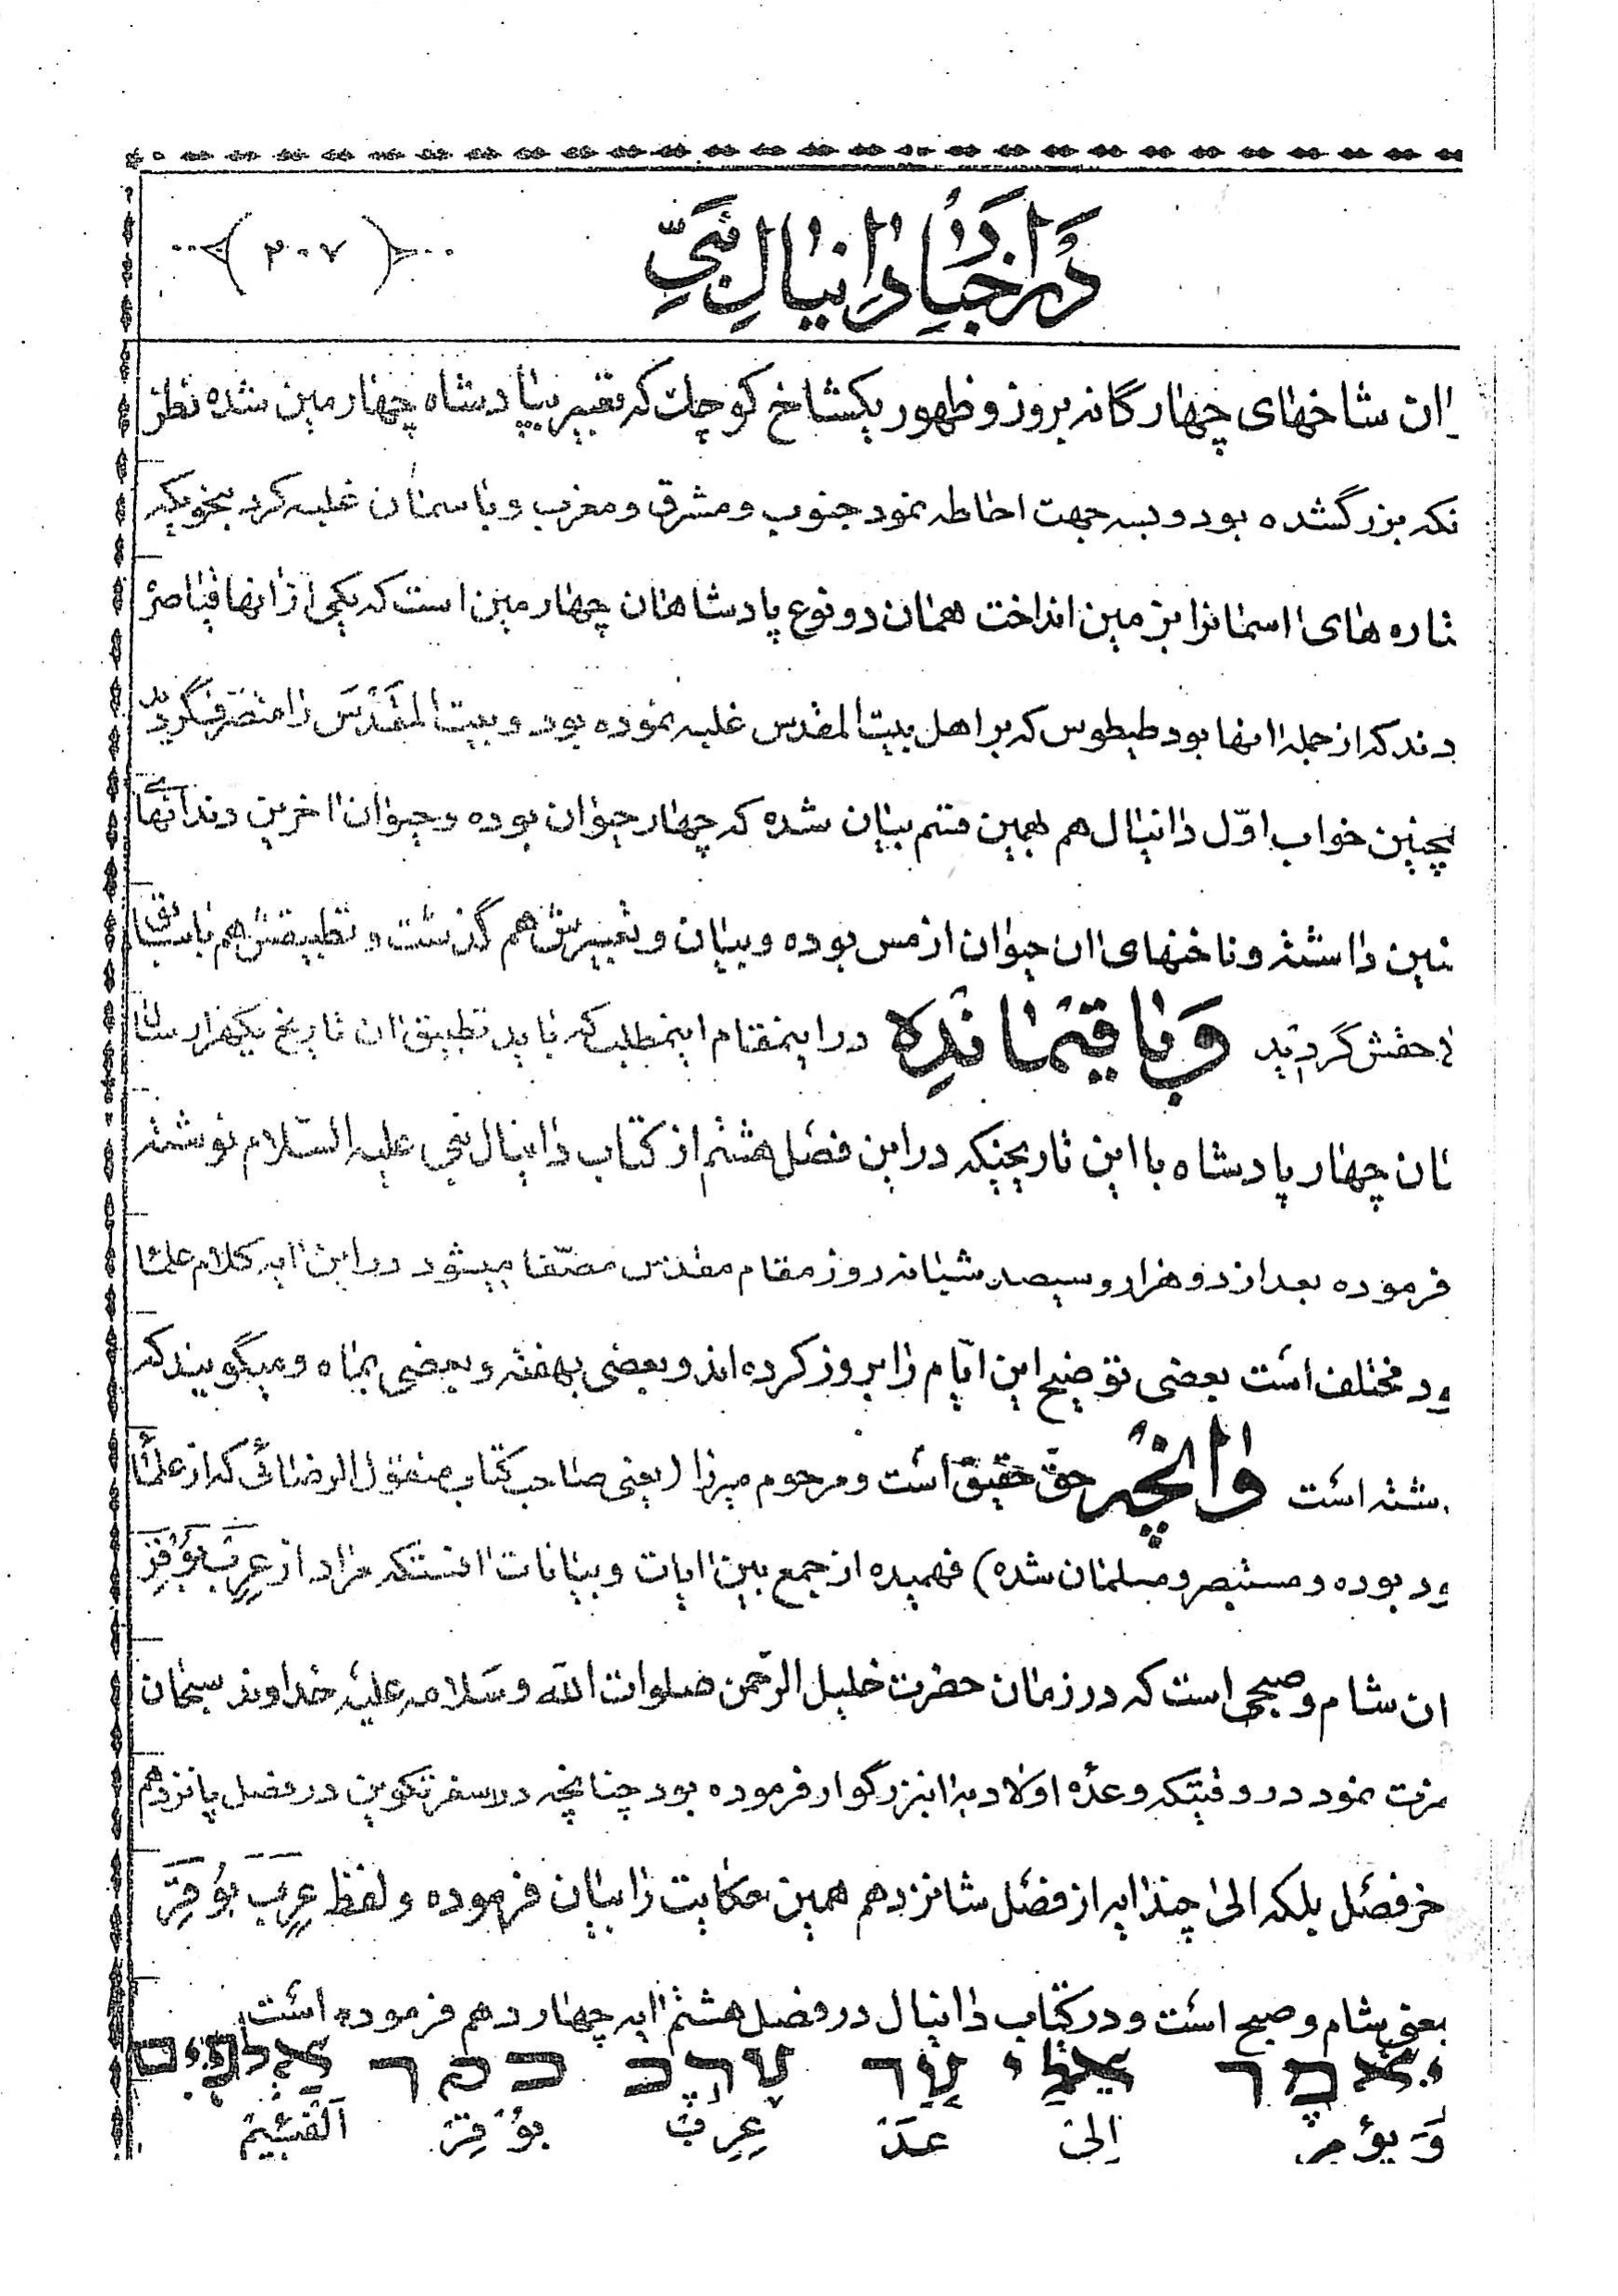 در اخبار دانیال نبیّ
(۲۰۷)
اان شاخهای چهار گانه بروز و ظهور یکشاخ کوچك که تعبیر بپادشاه چهارمین شده نظر
نکه بزرگشده بود و بسه جهت احاطه نمود جنوب و مشرق و مغرب و باسمان غلبه کرد بنحویکه
تاره های اسمانرا بزمین انداخت همان دو نوع پادشاهان چهارمین است که یکی از انها قیاصره
دند که از جمله انها بود طیطوس که بر اهل بیت المقدس غلبه نموده بود و بیت المقدس را متصرف گردید
همچنین خواب اوّل دانیال هم بهمین قسم بیان شده که چهار حیوان بوده و حیوان اخرین دندانهای
هنین داشته و ناخنهای ان حیوان از مس بوده و بیان و تعبیرش هم گذشت و تطبیقش هم با سیاق
حقش گردید و باقیمانده در اینمقام اینمطلب که باید تطبیق ان تاریخ یکهزار سال
ان چهار پادشاه با این تاریخیکه در این فصل هشتم از کتاب دانیال نبی علیه السّلام نوشته
فرموده بعد از دو هزار و سیصد شبانه روز مقام مقدس مصفّا میشود در این ایه کلام علماء
ود مختلف است بعضی توضیح این ایّام را بروز کرده اند و بعضی بهفته و بعضی بماه و میگویند که
شته است و انچه حقّ حقیق است و مرحوم میرزا (یعنی صاحب کتاب منقول الرضائی که از علماء
ود بوده و مستبصر و مسلمان شده) فهمیده از جمع بین ایات و بیانات انستکه مراد از عِرِب بُوقِر
ان شام و صبحی است که در زمان حضرت خلیل الرّحمن صلوات اللّه و سلامه علیه خداوند سبحان
مرت نمود در وقتیکه وعدهٔ اولاد به انبزرگوار فرموده بود چنانچه در سفر تکوین در فصل پانزدهم
خر فصل بلکه الی چند ایه از فصل شانزدهم همین حکایت را بیان فرموده و لفظ عِرِب بُوقِر
یعنی شام و صبح است و در کتاب دانیال در فصل هشتم ایه چهاردهم فرموده است
ויאמר אלי עד ערב בקר אלפים
وَیؤمر اِلیَ عَدْ عِرِبْ بُوْقِرْ اَلْفَیِیمْ